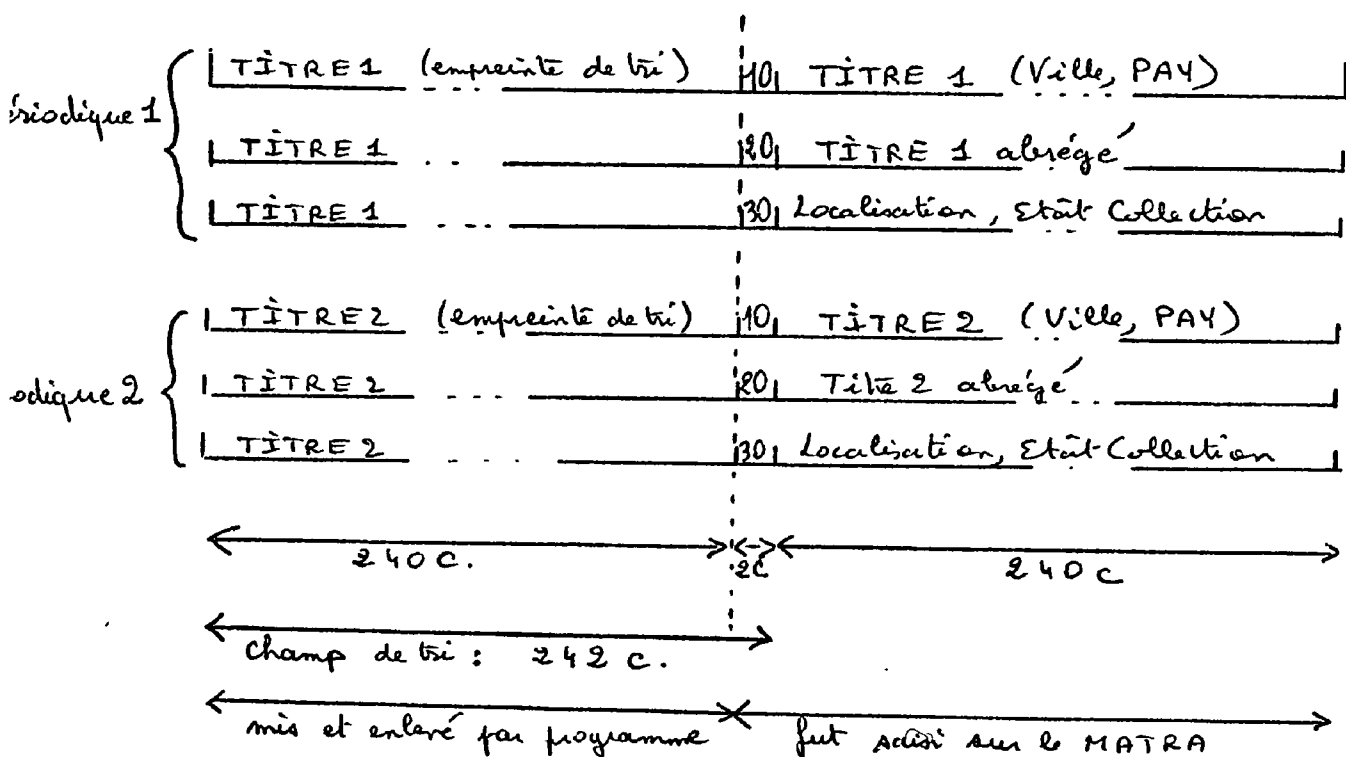 TITRE 1 (empreinte de tri) ... 10 TITRE 1 (Ville, PAY) ...
ériodique 1
TITRE 1 ... 20 TITRE 1 abrégé ...
TITRE 1 ... 30 Localisation, Etat Collection ...
TITRE 2 (empreinte de tri) ... 10 TITRE 2 (Ville, PAY) ...
odique 2
TITRE 2 ... 20 Titre 2 abrégé ...
TITRE 2 ... 30 Localisation, Etat Collection ...
240 C. 2C 240 C
Champ de tri : 242 C.
mis et enlevé par programme fut saisi sur le MATRA